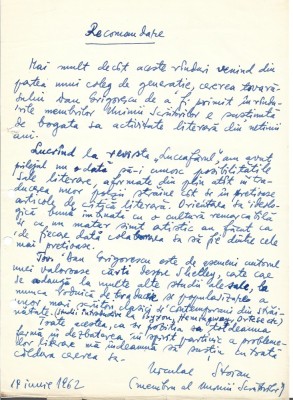 Recomandare
Mai mult decît aceste rînduri venind din
partea unui coleg de generație, cererea tovară-
șului Dan Grigorescu de a fi primit în rîndu-
rile membrilor Uniunii Scriitorilor e susținută
de bogata sa activitate literară din ultimii
ani.
Lucrînd la revista „Luceafărul", am avut
prilejul nu o dată să-i cunosc posibilitățile
sale literare, afirmate din plin atît în tra-
ducerea unor străine cît și în
articole de critică literară. Orientarea sa ideolo-
gică bună îmbinată cu o cultură remarcabilă
și cu un matur simț artistic au făcut ca
de fiecare dată colaborarea sa să fie dintre cele
mai prețioase.
Tov. Dan Grigorescu este de asemeni autorul
unei valoroase cărți despre Shelley, carte care
se adaugă la multe alte studii ale sale, la
munca rodnică de traducere și popularizare a
unor mari scriitori clasici și contemporani din stră-
inătate. (Studii introductive la Byron, Hemingway etc.)
Toate acestea, ca și poziția sa totdeauna
fermă în dezbaterea în spirit partinic a probleme-
lor literare mă îndeamnă să susțin cu toată
căldura cererea sa.
Niculae Stoian
19 iunie 1962 (membru al Uniunii Scriitorilor)